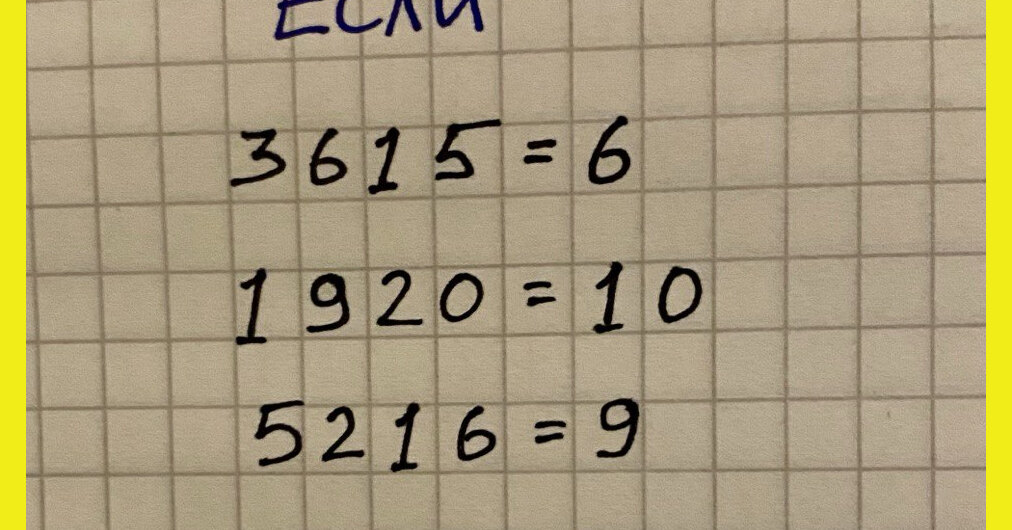 Если
3615=6
1920=10
5216=9